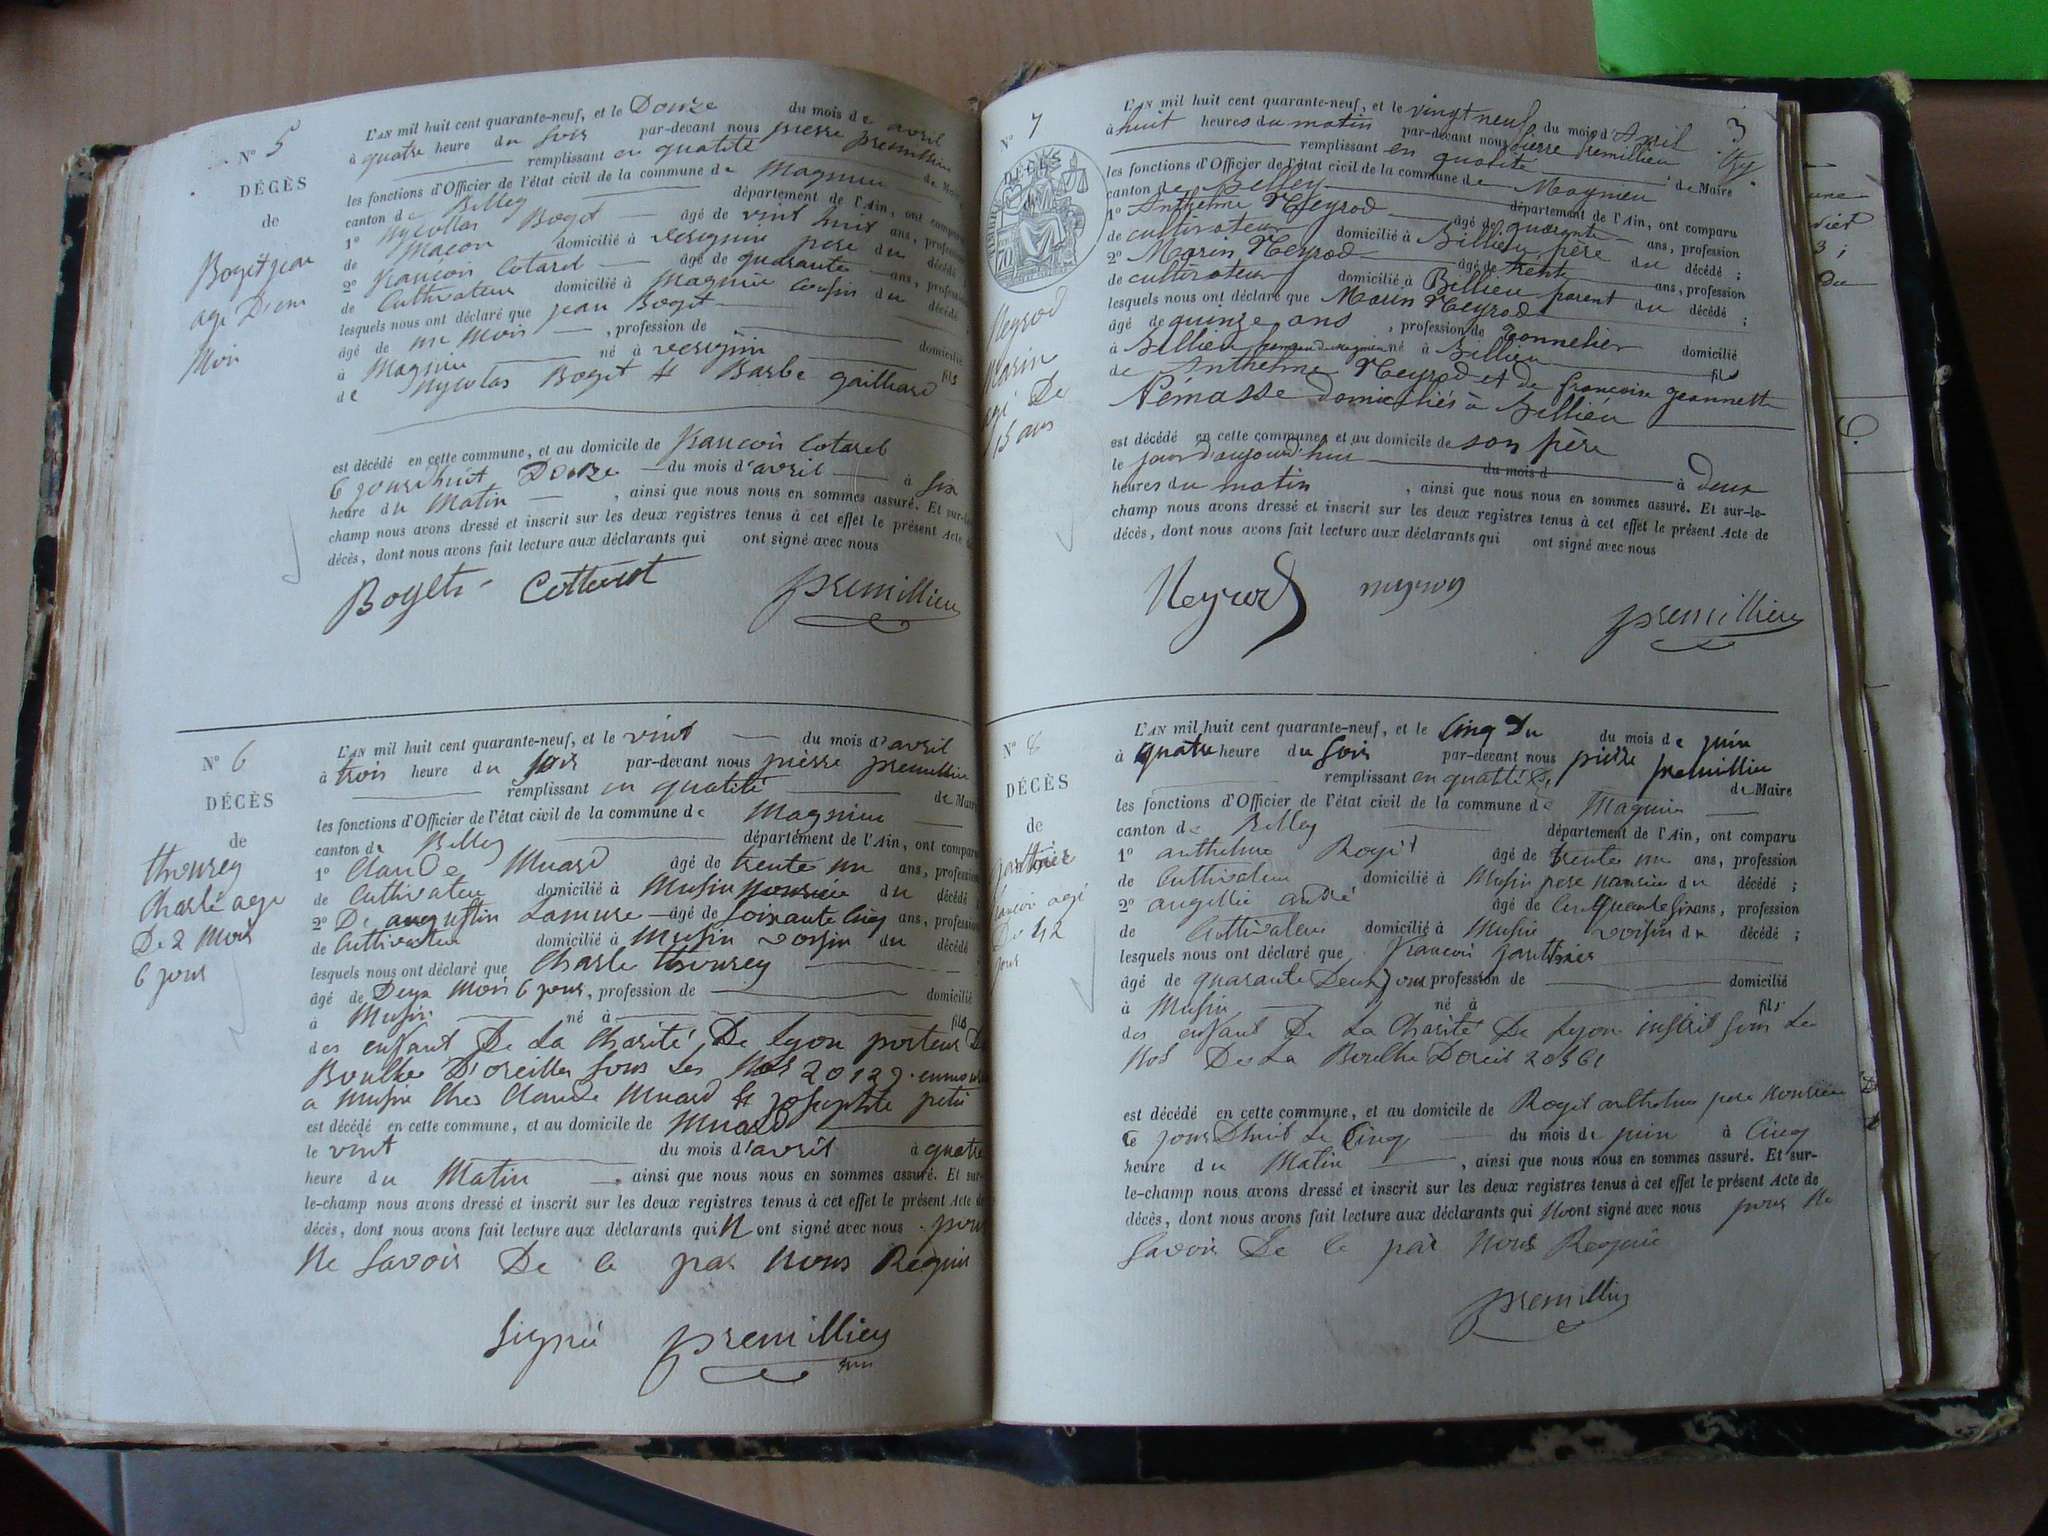 N° 5
DÉCÈS
de
Bogit jean
age D'un
Moi
L'AN mil huit cent quarante-neuf, et le Douze du mois de avril
à quatre heure du soir par-devant nous pierre premillieu
remplissant en qualité de Maire
les fonctions d'Officier de l'état civil de la commune de Magnieu
canton de Belley département de l'Ain, ont comparu
1° Nycollas Bogit âgé de vint huit ans, profession
de Macon domicilié à père du décédé
2° francois Cotarel âgé de quarante ans, profession
de Cultivateur domicilié à Magnieu cousin du décédé ;
lesquels nous ont déclaré que jean Bogit
âgé de un Mois , profession de domicilié
à Magnieu né à fils
de Nycolas Bogit et Barbe gailliard
est décédé en cette commune, et au domicile de francois Cotarel
Douze du mois d'avril à six
heure du Matin , ainsi que nous nous en sommes assuré. Et sur-le-
champ nous avons dressé et inscrit sur les deux registres tenus à cet effet le présent Acte de
décès, dont nous avons fait lecture aux déclarants qui ont signé avec nous
premillieu
N° 6
DÉCÈS
de
thourey
Charle age
De 2 Mois
6 jour
L'AN mil huit cent quarante-neuf, et le vint du mois d'avril
à trois heure du soir par-devant nous pierre premillieu
remplissant en qualité de Maire
les fonctions d'Officier de l'état civil de la commune de Magnieu
canton de Belley département de l'Ain, ont comparu
1° Claude Muard âgé de trente un ans, profession
de Cultivateur domicilié à Musin du décédé
2° augustin Lamure âgé de soixante Cinq ans, profession
de Cultivateur domicilié à Musin voisin du décédé ;
lesquels nous ont déclaré que Charle thourey
âgé de Deux Mois 6 jour, profession de domicilié
à Musin né à fils
des enfant De La Charité De Lyon porteur De
Boulhe D'oreilles sous les Nos 20129
a Musin Ches Claude Muard et josephte petit
est décédé en cette commune, et au domicile de Muard
le vint du mois d'avril à quatre
heure du Matin , ainsi que nous nous en sommes assuré. Et sur-
le-champ nous avons dressé et inscrit sur les deux registres tenus à cet effet le présent Acte de
décès, dont nous avons fait lecture aux déclarants qui N ont signé avec nous pour
Ne savoir De ce par Nous Requis
Signé premillieu
N° 7
3
DÉCÈS
Neyrod
Marin
agé De
15 ans
L'AN mil huit cent quarante-neuf, et le vingt neuf du mois d'Avril
à huit heures du matin par-devant nous pierre premillieu
remplissant en qualité de Maire
les fonctions d'Officier de l'état civil de la commune de Magnieu
canton de Belley département de l'Ain, ont comparu
1° Anthelme Neyrod âgé de quarante ans, profession
de cultivateur domicilié à Billieu père du décédé ;
2° Marin Neyrod âgé de trente ans, profession
de cultivateur domicilié à Billieu parent du décédé ;
lesquels nous ont déclaré que Marin Neyrod
âgé de quinze ans , profession de Tonnelier domicilié
à Billieu né à Billieu fils
de Anthelme Neyrod et de françoise jeannette
Pémasse domiciliés à Billieu
est décédé en cette commune, et au domicile de son père
le jour d'aujourd'hui du mois d à deux
heures du matin , ainsi que nous nous en sommes assuré. Et sur-le-
champ nous avons dressé et inscrit sur les deux registres tenus à cet effet le présent Acte de
décès, dont nous avons fait lecture aux déclarants qui ont signé avec nous
Neyrod premillieu
N° 8
DÉCÈS
de
francois agé
De 42
jour
L'AN mil huit cent quarante-neuf, et le Cinq Du du mois de juin
à quatre heure du soir par-devant nous pierre premillieu
remplissant en qualité de Maire
les fonctions d'Officier de l'état civil de la commune de Magnieu
canton de Belley département de l'Ain, ont comparu
1° anthelme Rogit âgé de trente un ans, profession
de Cultivateur domicilié à Musin pere du décédé ;
2° andré âgé de Cinquante six ans, profession
de Cultivateur domicilié à Musin voisin du décédé ;
lesquels nous ont déclaré que francois
âgé de quarante Deux jour profession de domicilié
à Musin né à fils
des enfant De La Charité De Lyon inscrit sous Le
Nos De La Boulhe 20361
est décédé en cette commune, et au domicile de Rogit anthelme pere
le Cinq du mois de juin à Cinq
heure du Matin , ainsi que nous nous en sommes assuré. Et sur-
le-champ nous avons dressé et inscrit sur les deux registres tenus à cet effet le présent Acte de
décès, dont nous avons fait lecture aux déclarants qui Nont signé avec nous pour Ne
savoir De ce par Nous Requis
premillieu